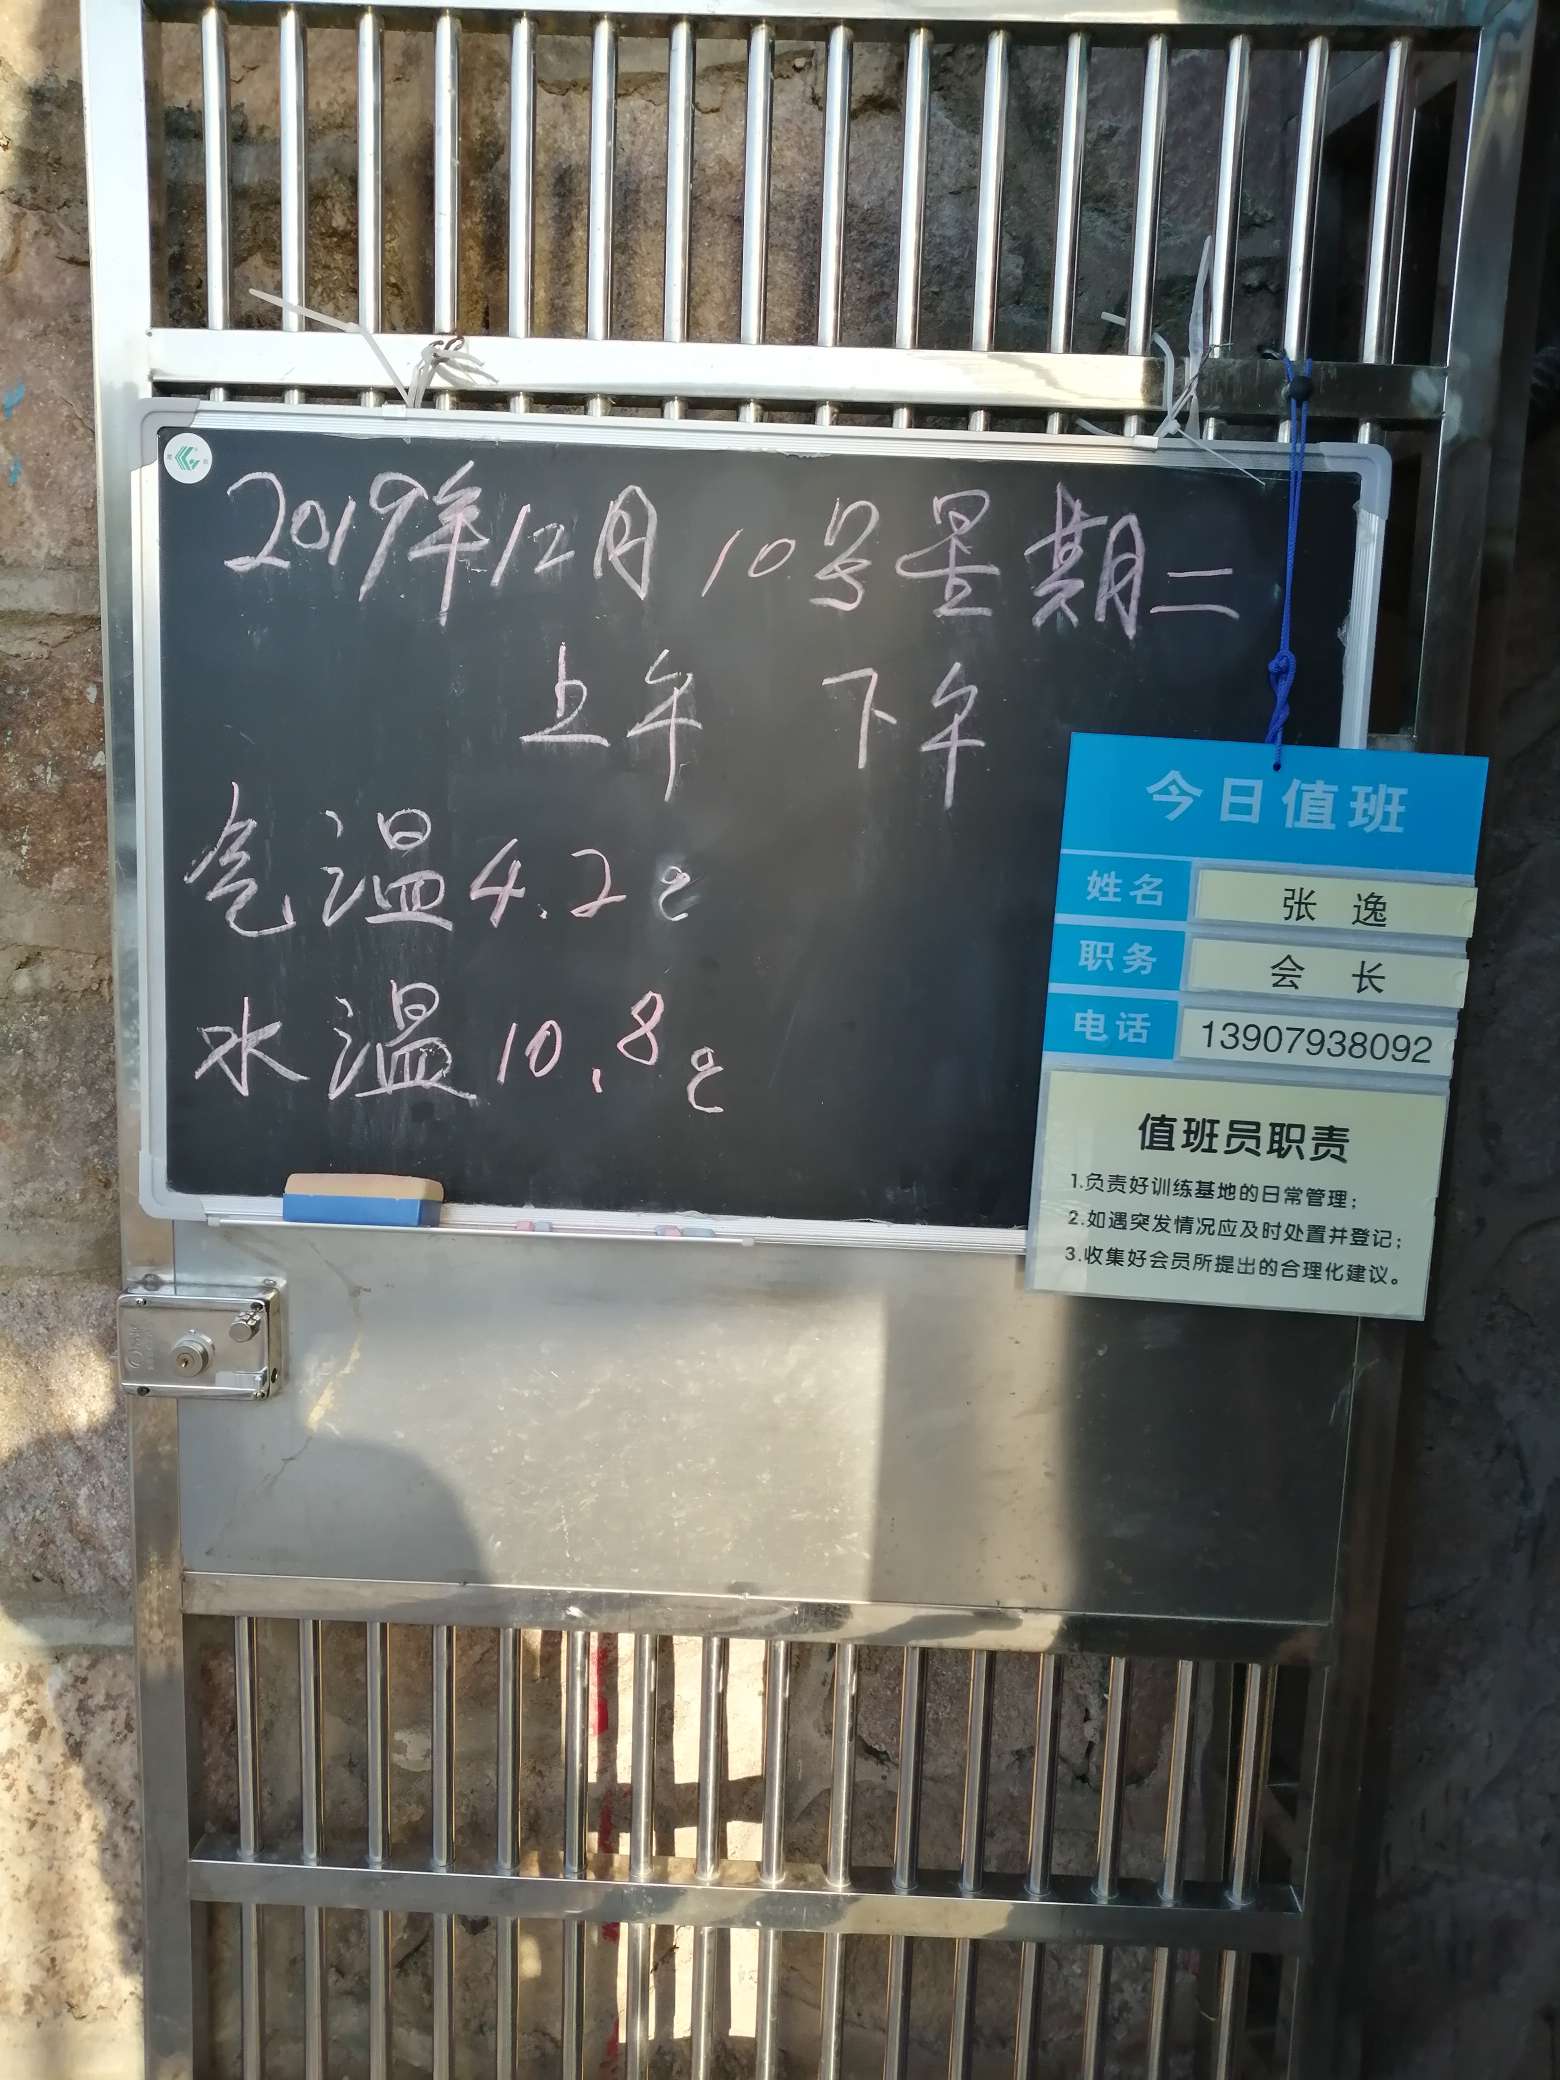 2019年12月10号星期二
上午 下午
气温4.2℃
水温10.8℃
今日值班
姓名 张 逸
职务 会 长
电话 13907938092
值班员职责
1.负责好训练基地的日常管理；
2.如遇突发情况应及时处置并登记；
3.收集好会员所提出的合理化建议。